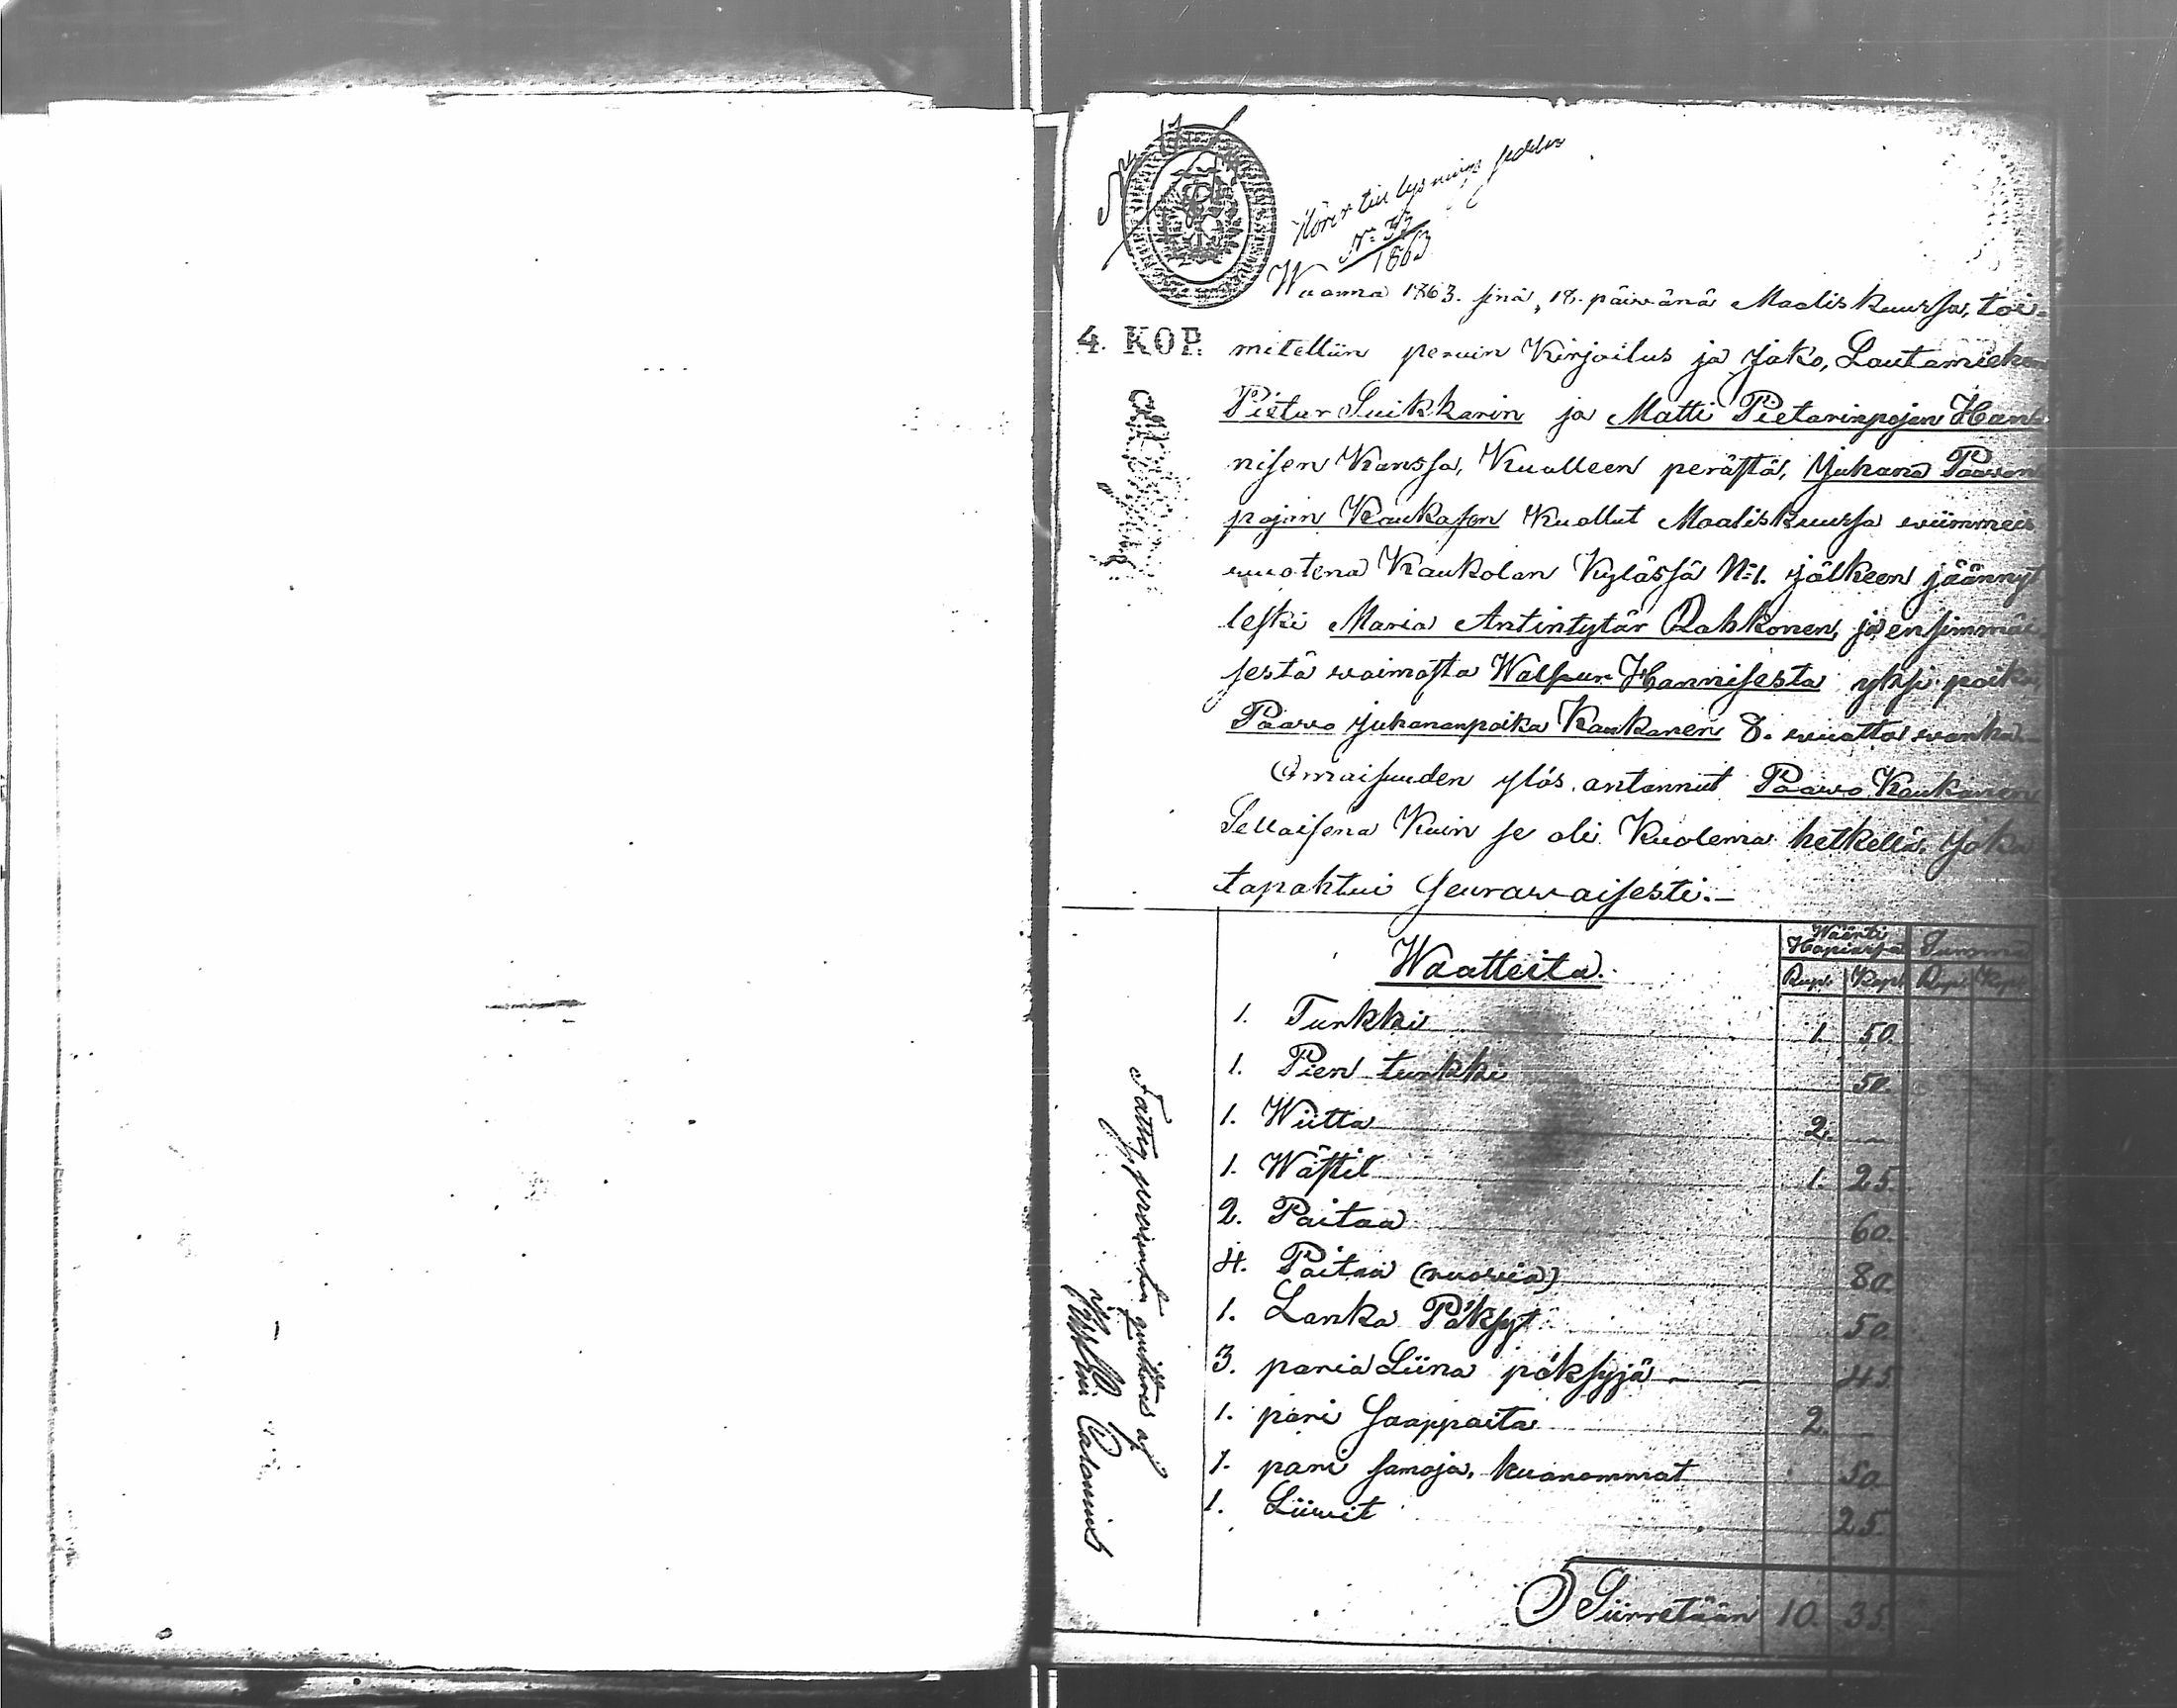 Hörer till lysnings sedeln
1863
Wuonna 1863. sinä 18. päiwänä Maaliskuussa, toi-
4. KOP.
mitettiin peruin Kirjoitus ja Jako, Lautamiehen
Pietar Suikkarin ja Matti Pietarinpojan Han-
nisen Kanssa, Kuolleen perästä, Juhana Paawon
pojan Kaukasen Kuollut Maaliskuussa wiimmeis
wuotena Kaukolan Kylässä No 1. jälkeen jäännyt
leski Maria Antintytär Rahkonen, ja ensimmäi-
sestä waimosta Walpur Hannisesta yksi poika,
Paawo Juhananpoika Kaukanen 8. wuotta wanha.
Omaisuuden ylös antannut Paawo Kaukanen
Sellaisena Kuin se oli Kuolema hetkellä, Joka
tapahtui seurawaisesti.-
Waatteita.
Wäärti Hopiassa Summa
Rup. Kop. Rup. Kop.
1. Turkki 1. 50.
1. Pien turkki 50.
1. Wiitta 2. -
1. Wästil 1. 25.
2. Paitaa 60.
4. Paitaa (nuoria) 80.
1. Lanka Päksyt 50.
3. paria Liina päksyjä 45
1. pari Saappaita 2. -
1. pari samoja, huanommat 50.
1. Liiwit 25.
Siirretään 10. 35.
Fattig procenten quitteras af
Calonius